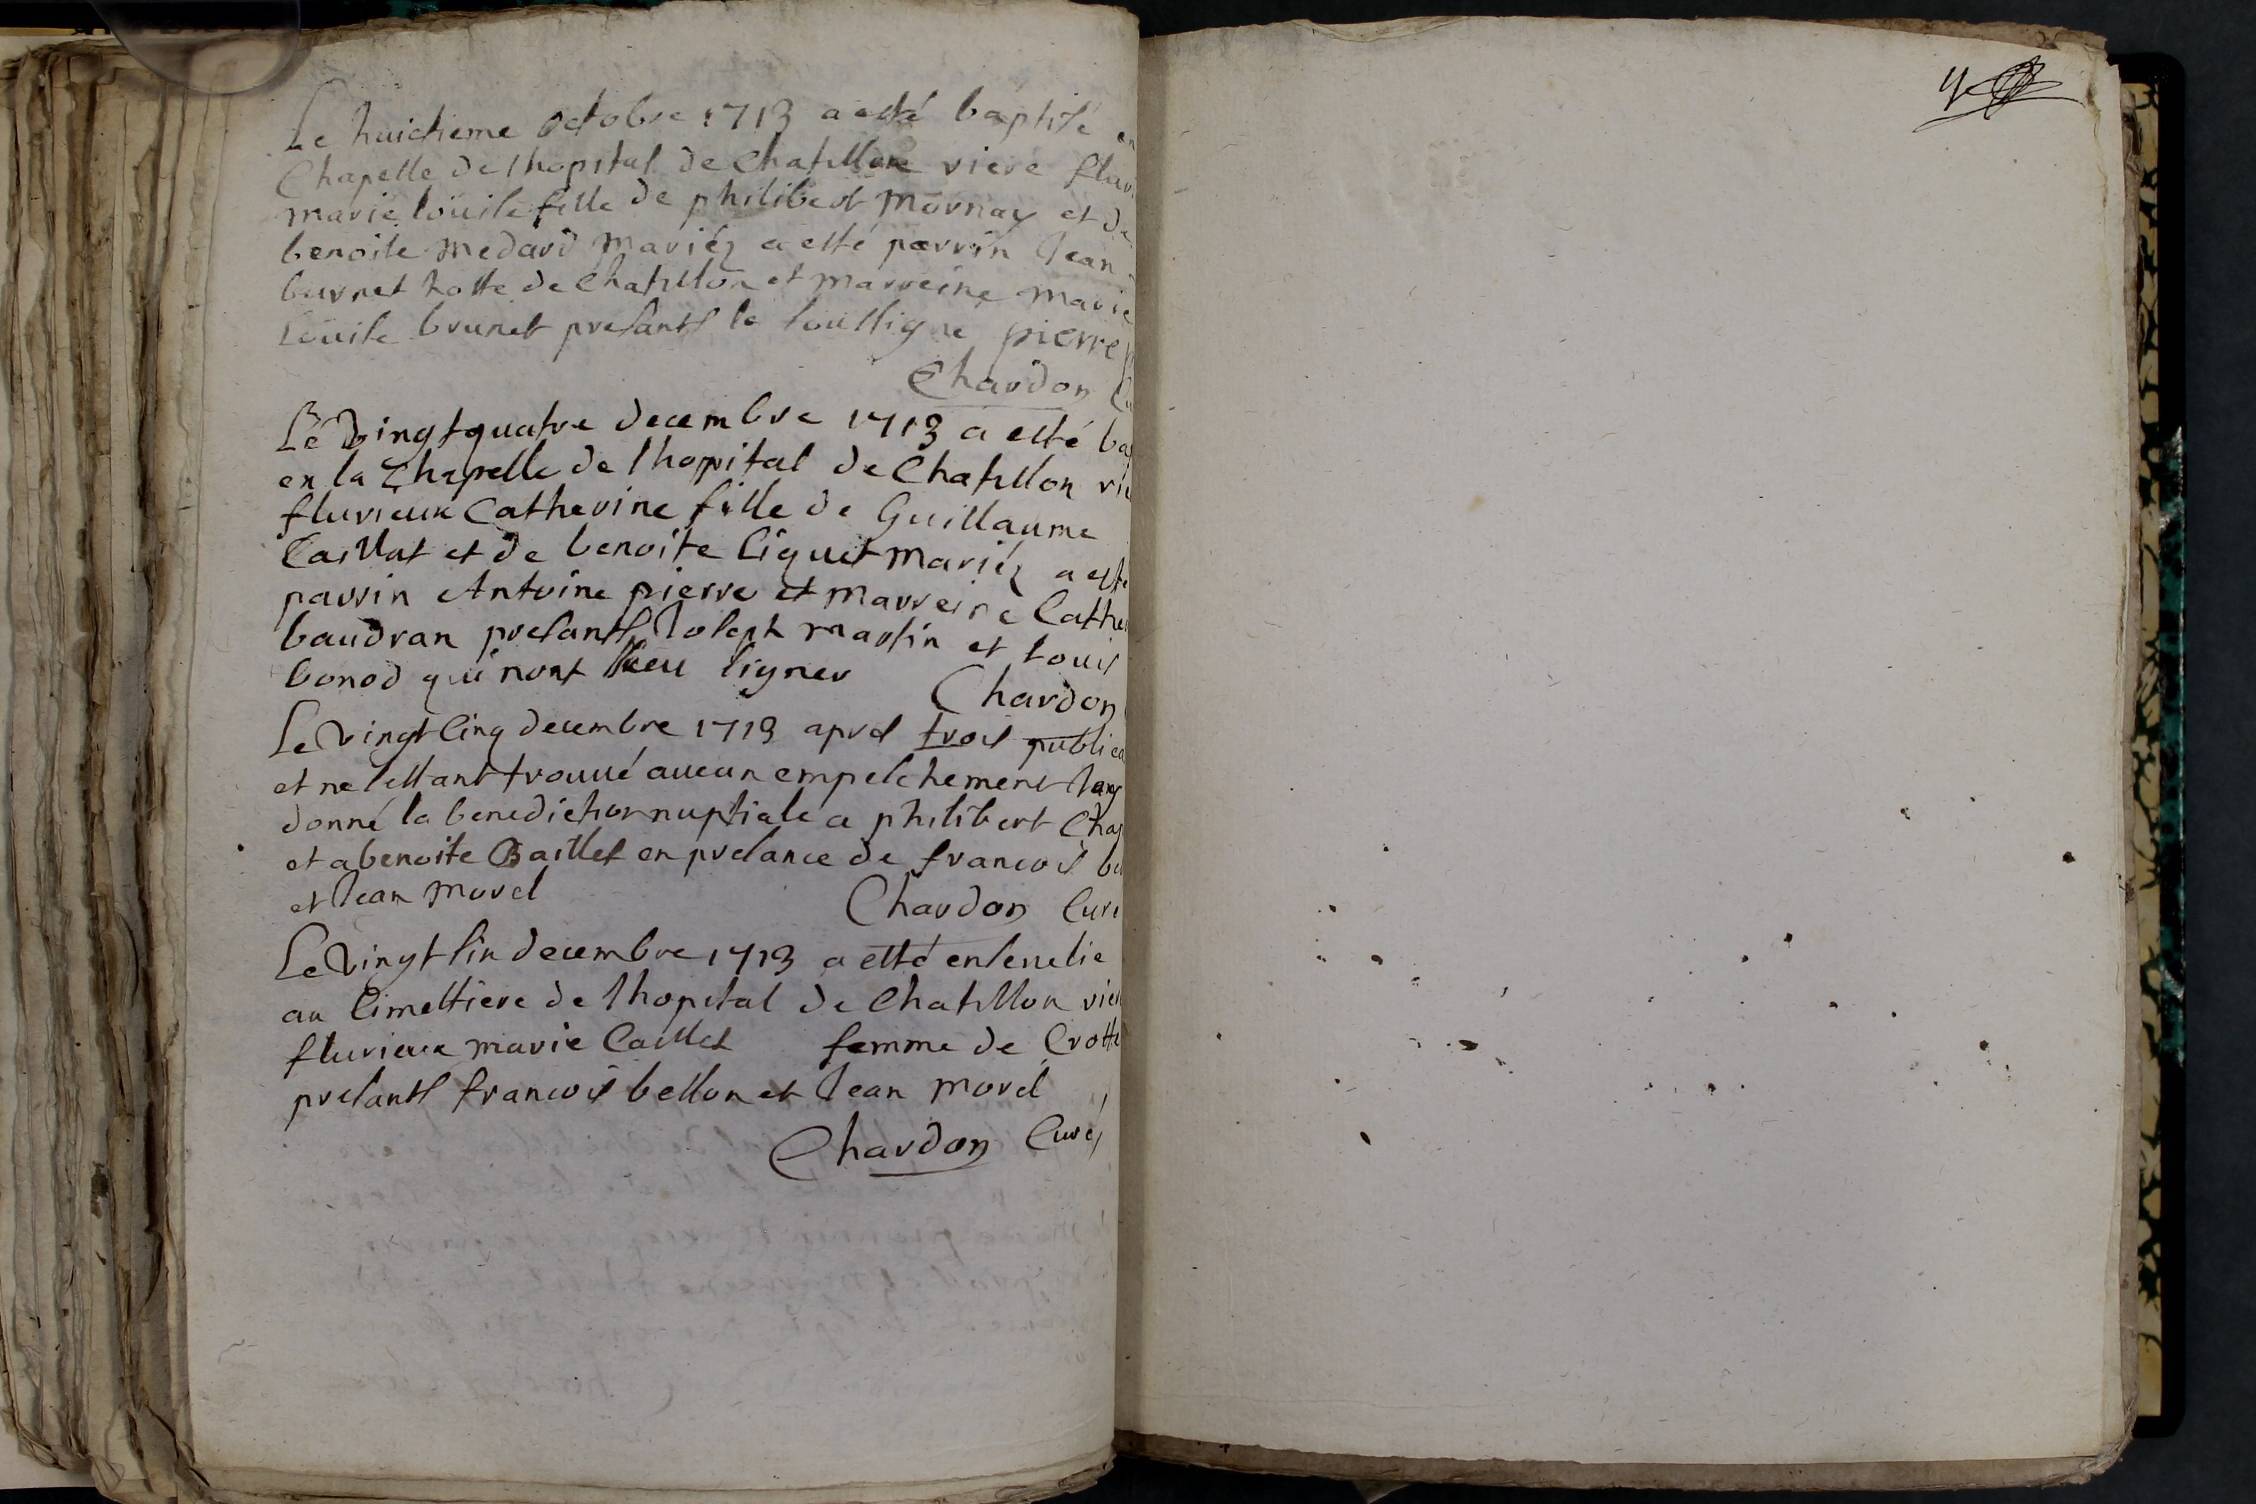 Le huictieme octobre 1713 a esté baptisé en
Chapelle de lhopital de Chatillon viere fluv
marie loüise fille de philibert mornay et de
benoite medard mariéz a esté parrin Jean
burnet hoste de Chatillon et marreine marie
loüise brunet presants le soussigne pierre
Chardon Cu
Le vingtquatre decembre 1713 a esté bap
en la Chapelle de lhopital de Chatillon vie
fluvieux Catherine fille de Guillaume
Caillat et de benoite liquet mariéz a esté
parrin Antoine pierre et marreine Cathe
baudran presants Joseph martin et louis
bonod qui nont sceu signer Chardon
Le vingt cinq decembre 1713 apres trois publica
et ne sestant trouué aucun empeschement Jay
donné la benediction nuptiale a philibert Chap
et a benoite Baillet en presance de francois be
et Jean morel Chardon Curé
Le vingt six decembre 1713 a esté ensevelie
au Cimestiere de lhopital de Chatillon vier
fluvieux marie Caillet femme de Crotte
presants francois bellon et Jean morel
Chardon Curé
4